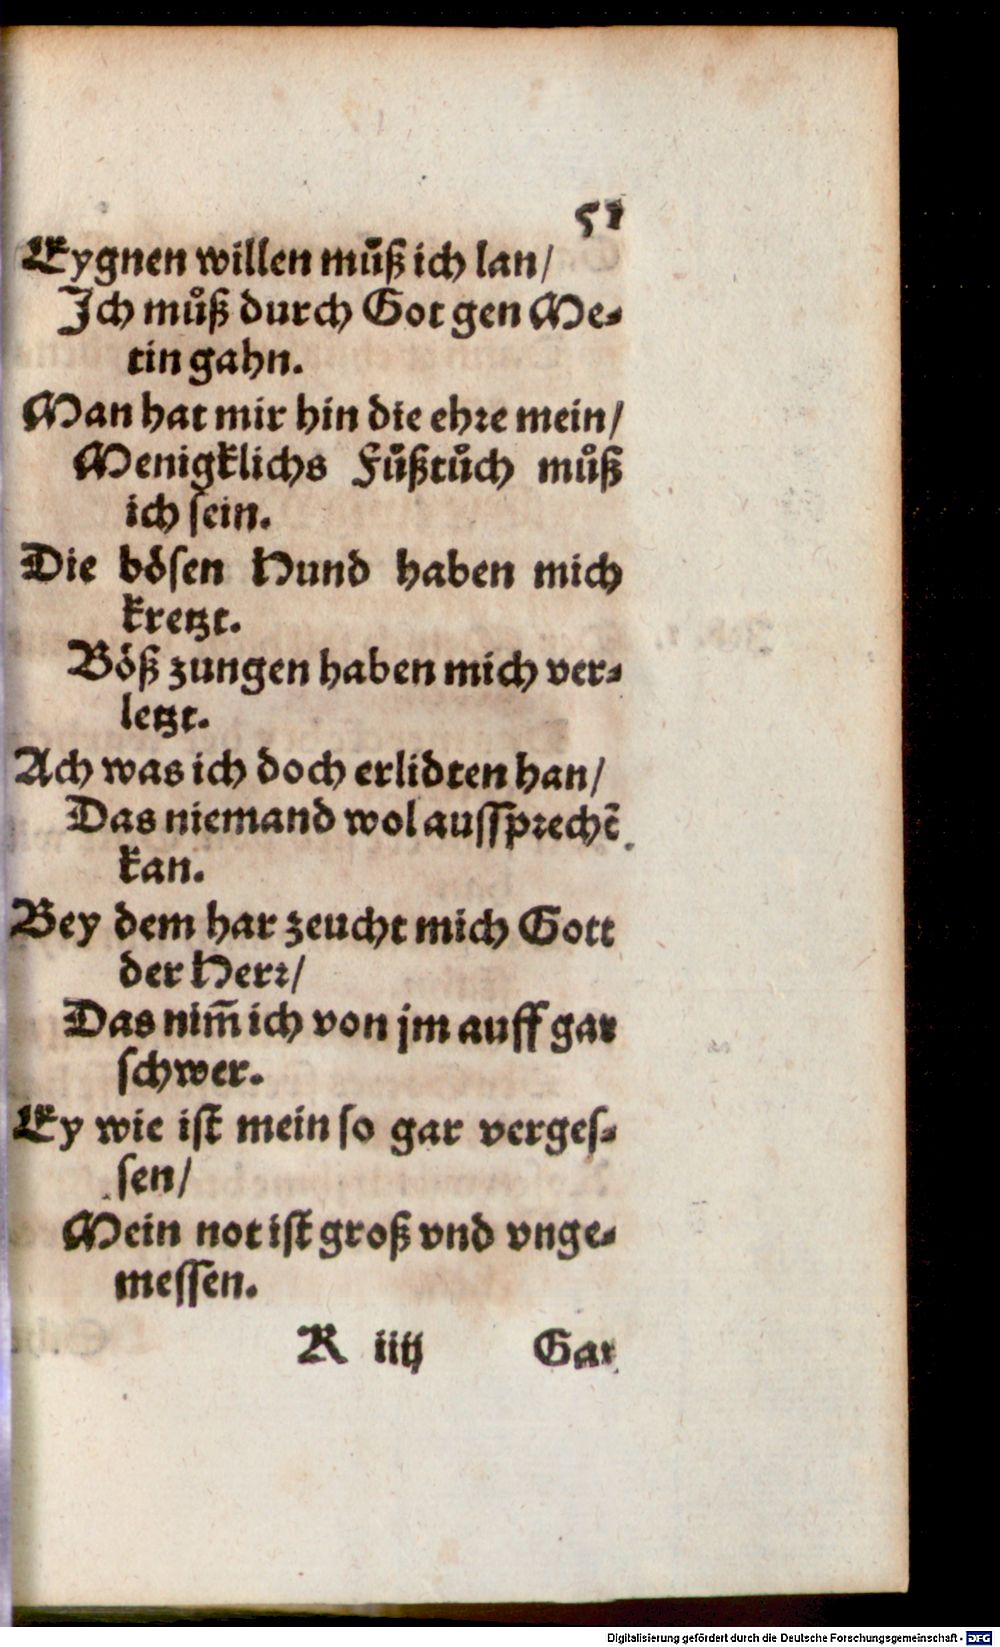 51
Eygnen willen muͦß ich lan/
Jch muͦß durch Got gen Me⸗
tin gahn.
Man hat mir hin die ehꝛe mein/
Menigklichs Fuͦßtuͦch muͦß
ich sein.
Die boͤſen Hund haben mich
kretzt.
Boͤß zungen haben mich ver⸗
letzt.
Ach was ich doch erlidten han/
Das niemand wol auſſpꝛechẽ
kan.
Bey dem har zeucht mich Gott
der Herꝛ/
Das nim̃ ich von jm auff gar
ſchwer.
Ey wie iſt mein ſo gar vergeſ⸗
ſen/
Mein not iſt groß vnd vnge⸗
meſſen.
R iiij Gar
Digitalisierung gefördert durch die Deutsche Forschungsgemeinschaft - DFG